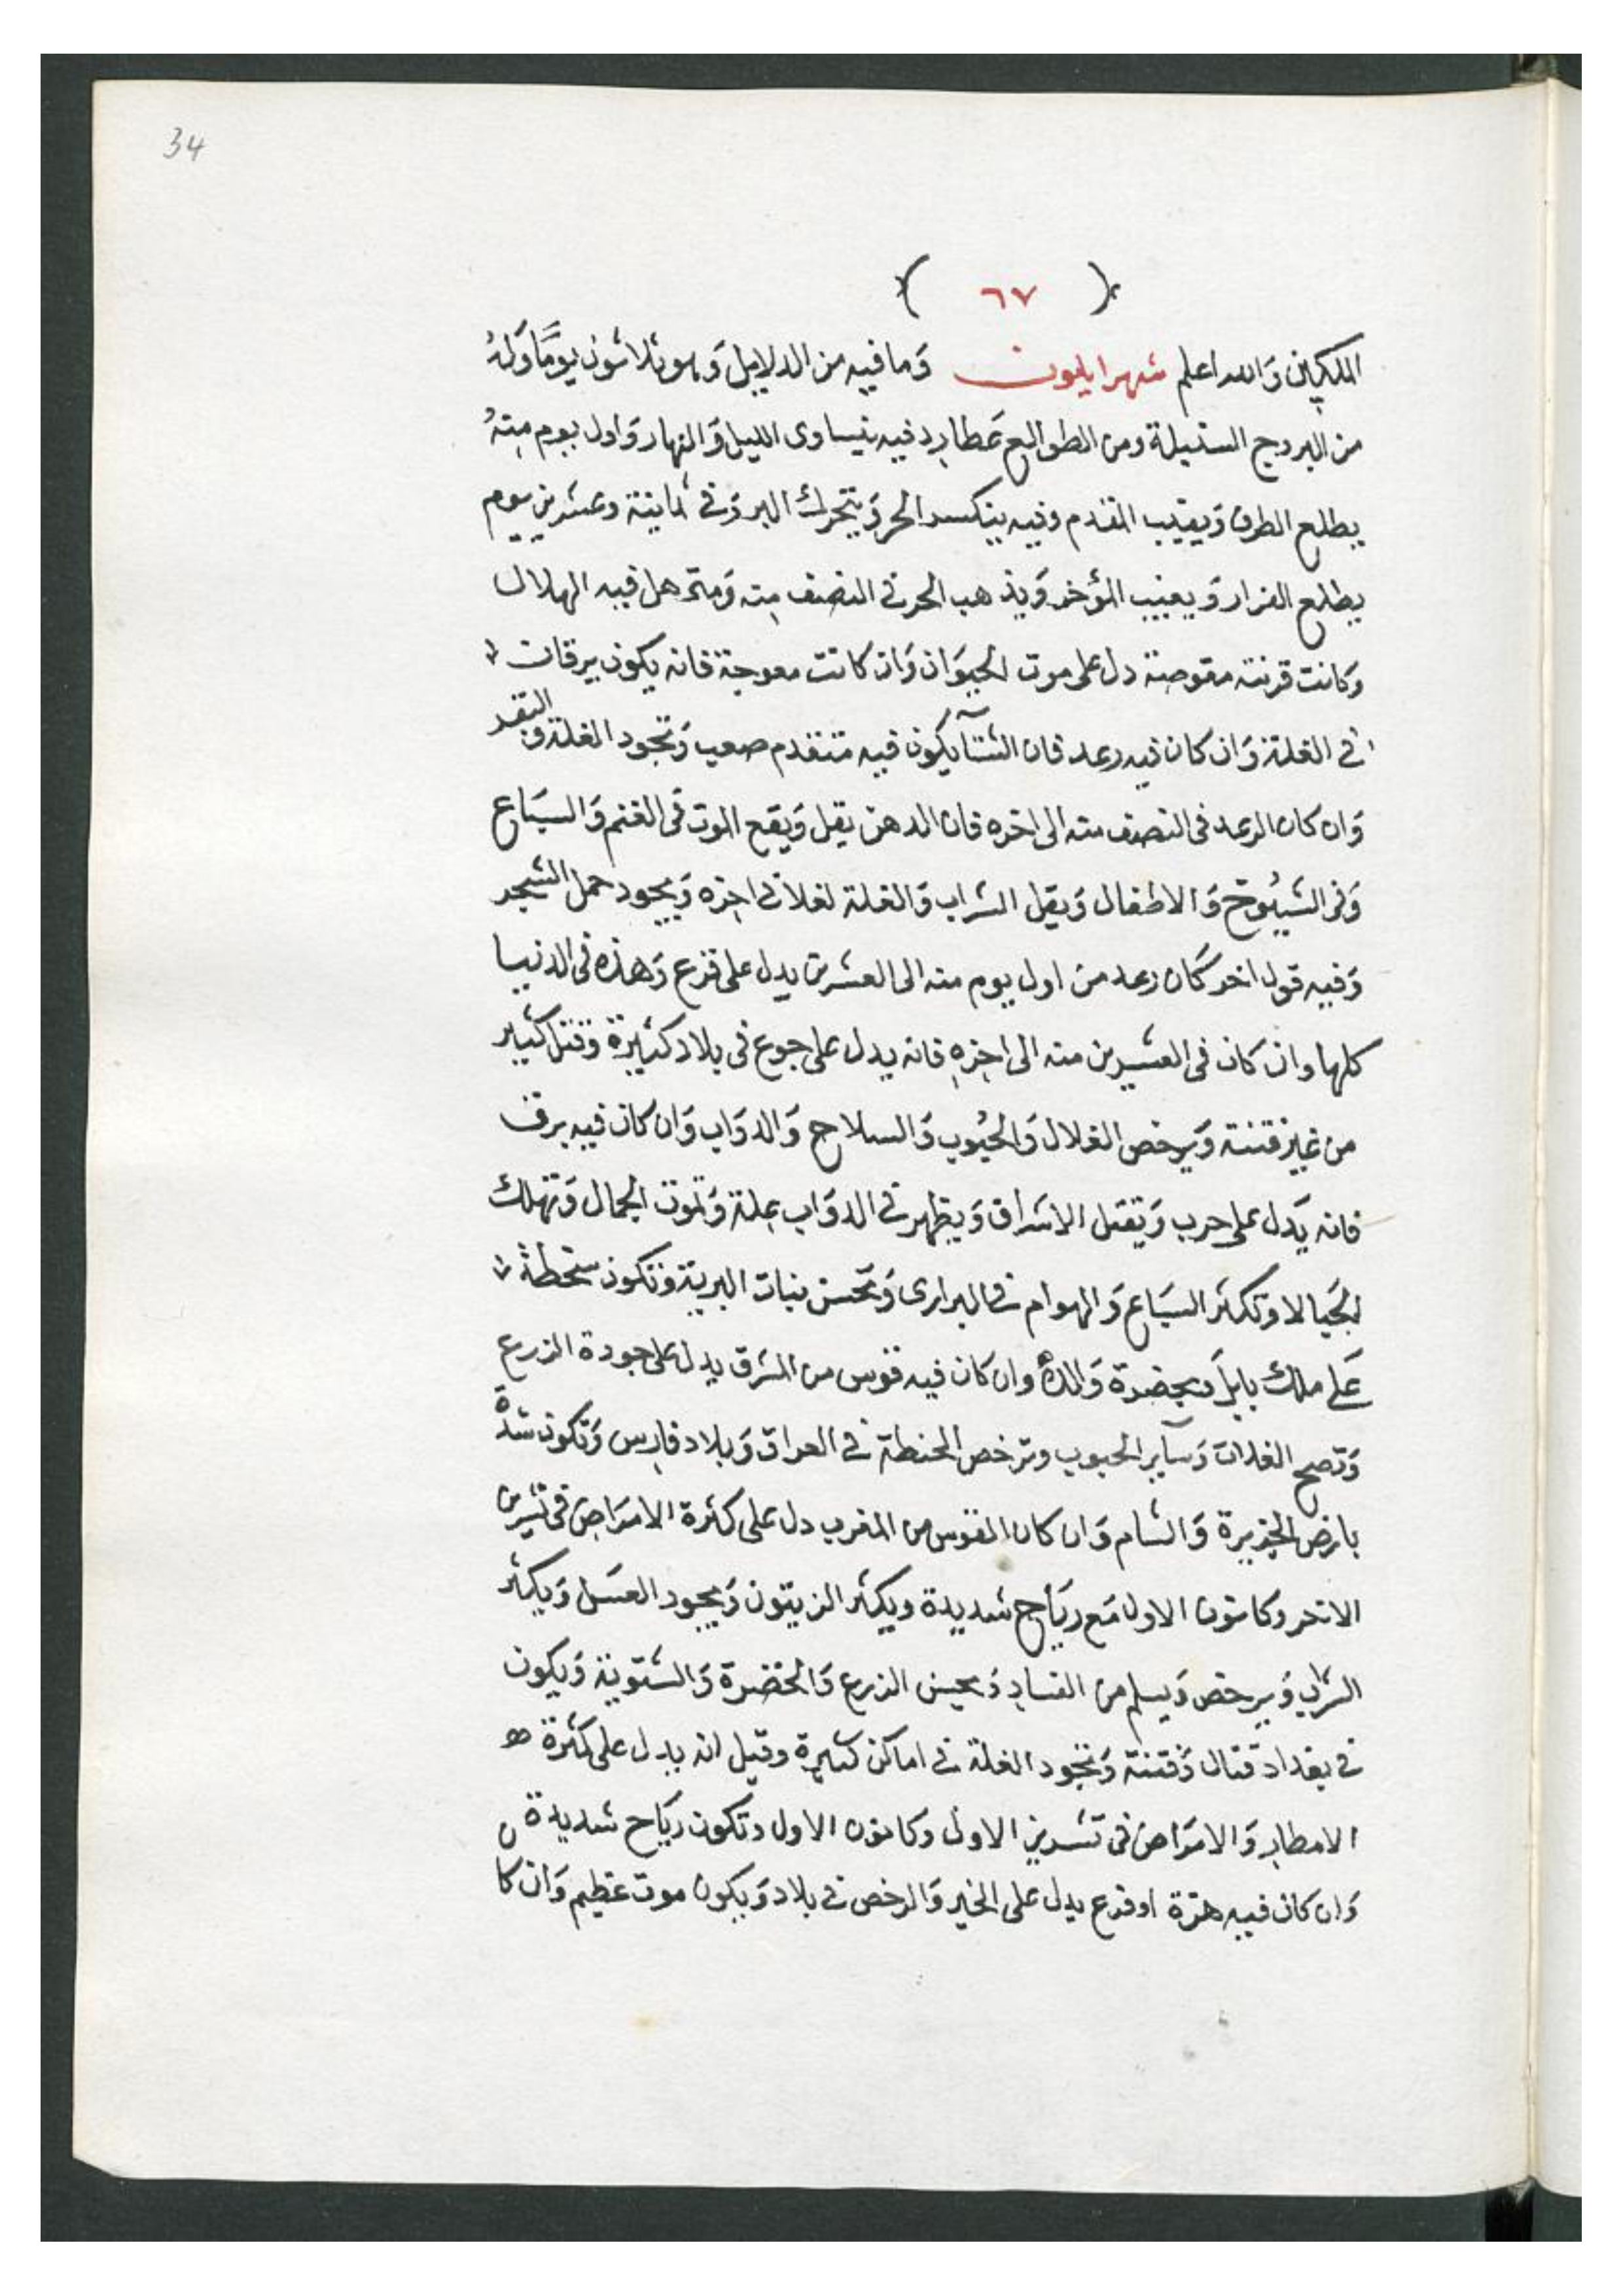 34
( ٦٧ )
الملكين وَالله اعلم شهر ايلون وَما فيه من الدلايل وَهو ثلاثون يومًا وَلهُ
من البروج السنبلة ومن الطوالع عَطارد فيه يتساوى الليل وَالنهار وَاول يوم منهُ
يطلع الطرف وَيغيب المقدم وفيه ينكسد الحر وَيتحرك البردَ وفى ثمانية وعشرين يوم
يطلع الفرار وَيغيب المؤخر وَيذهب الحر فى النصف منه وَمتى هل فيه الهلال
وَكانت قرنته مقوصة دل على موت الحيوَان وَان كانت معوجة فانه يكون يرقان
فى الغلة وَان كان فيه رعد فان الشتآ يكون فيه متقدم صعب وَتجود الغلة وَ البقر
وَان كان الرعد فى النصف منه الى اخره فان الدهن يقل وَيقع الموت فى الغنم وَالسبَاع
وَفى الشيُوخ وَالاطفال وَيقل الشراب وَالغلة لغلا فى اخره وَيجود حمل الشجر
وَفيه قول اخر كَان رعد من اول يوم منه الى العشرين يدل على فزع وَهذه فى الدنيا
كلها وان كان فى العشرين منه الى اخره فانه يدل على جوع فى بلاد كثيرة وقتل كثير
من غير فتنة وَيرخص الغلال وَالحبُوب وَالسلاح وَالدوَاب وَان كان فيه برق
فانه يَدل على حرب وَيقتل الاشراف وَيظهر فى الدوَاب علة وَتموت الجمال وَتهلك
الجَيالا وتكثر السبَاع وَالهوام فى البرارى وَتحسن نبات البرية وَتكون سخطة
عَلى ملك بابل وَيحضرة وَاللهُ وان كان فيه قوس من الشرق يدل على جودة الزرع
وَتصح الغلات وَسآير الحبوب وترخص الحنطة فى العراق وَبلاد فارس وَتكون شدة
بارض الجزيرة وَالشام وَان كان القوس من المغرب دل على كثرة الامرَاض فى تشرين
الاخر وكانون الاول مَع ريَاح شديدة ويكثر الزيتون وَيجود العسَل وَيكثر
الشراب وَيرخص وَيسلم من الفساد وَيحسن الزرع وَالخضرة وَالشتوية وَيكون
فى بغداد قتال وَفتنة وَتجود الغلة فى اماكن كثيرة وقيل انه يدل على كثرة
الامطار وَالامرَاض فى تشرين الاول وكانون الاول وتكون ريَاح شديدة
وَان كان فيه هزة او فزع يدل على الخير وَالرخص فى بلاد وَيكون موت عظيم وَان كا